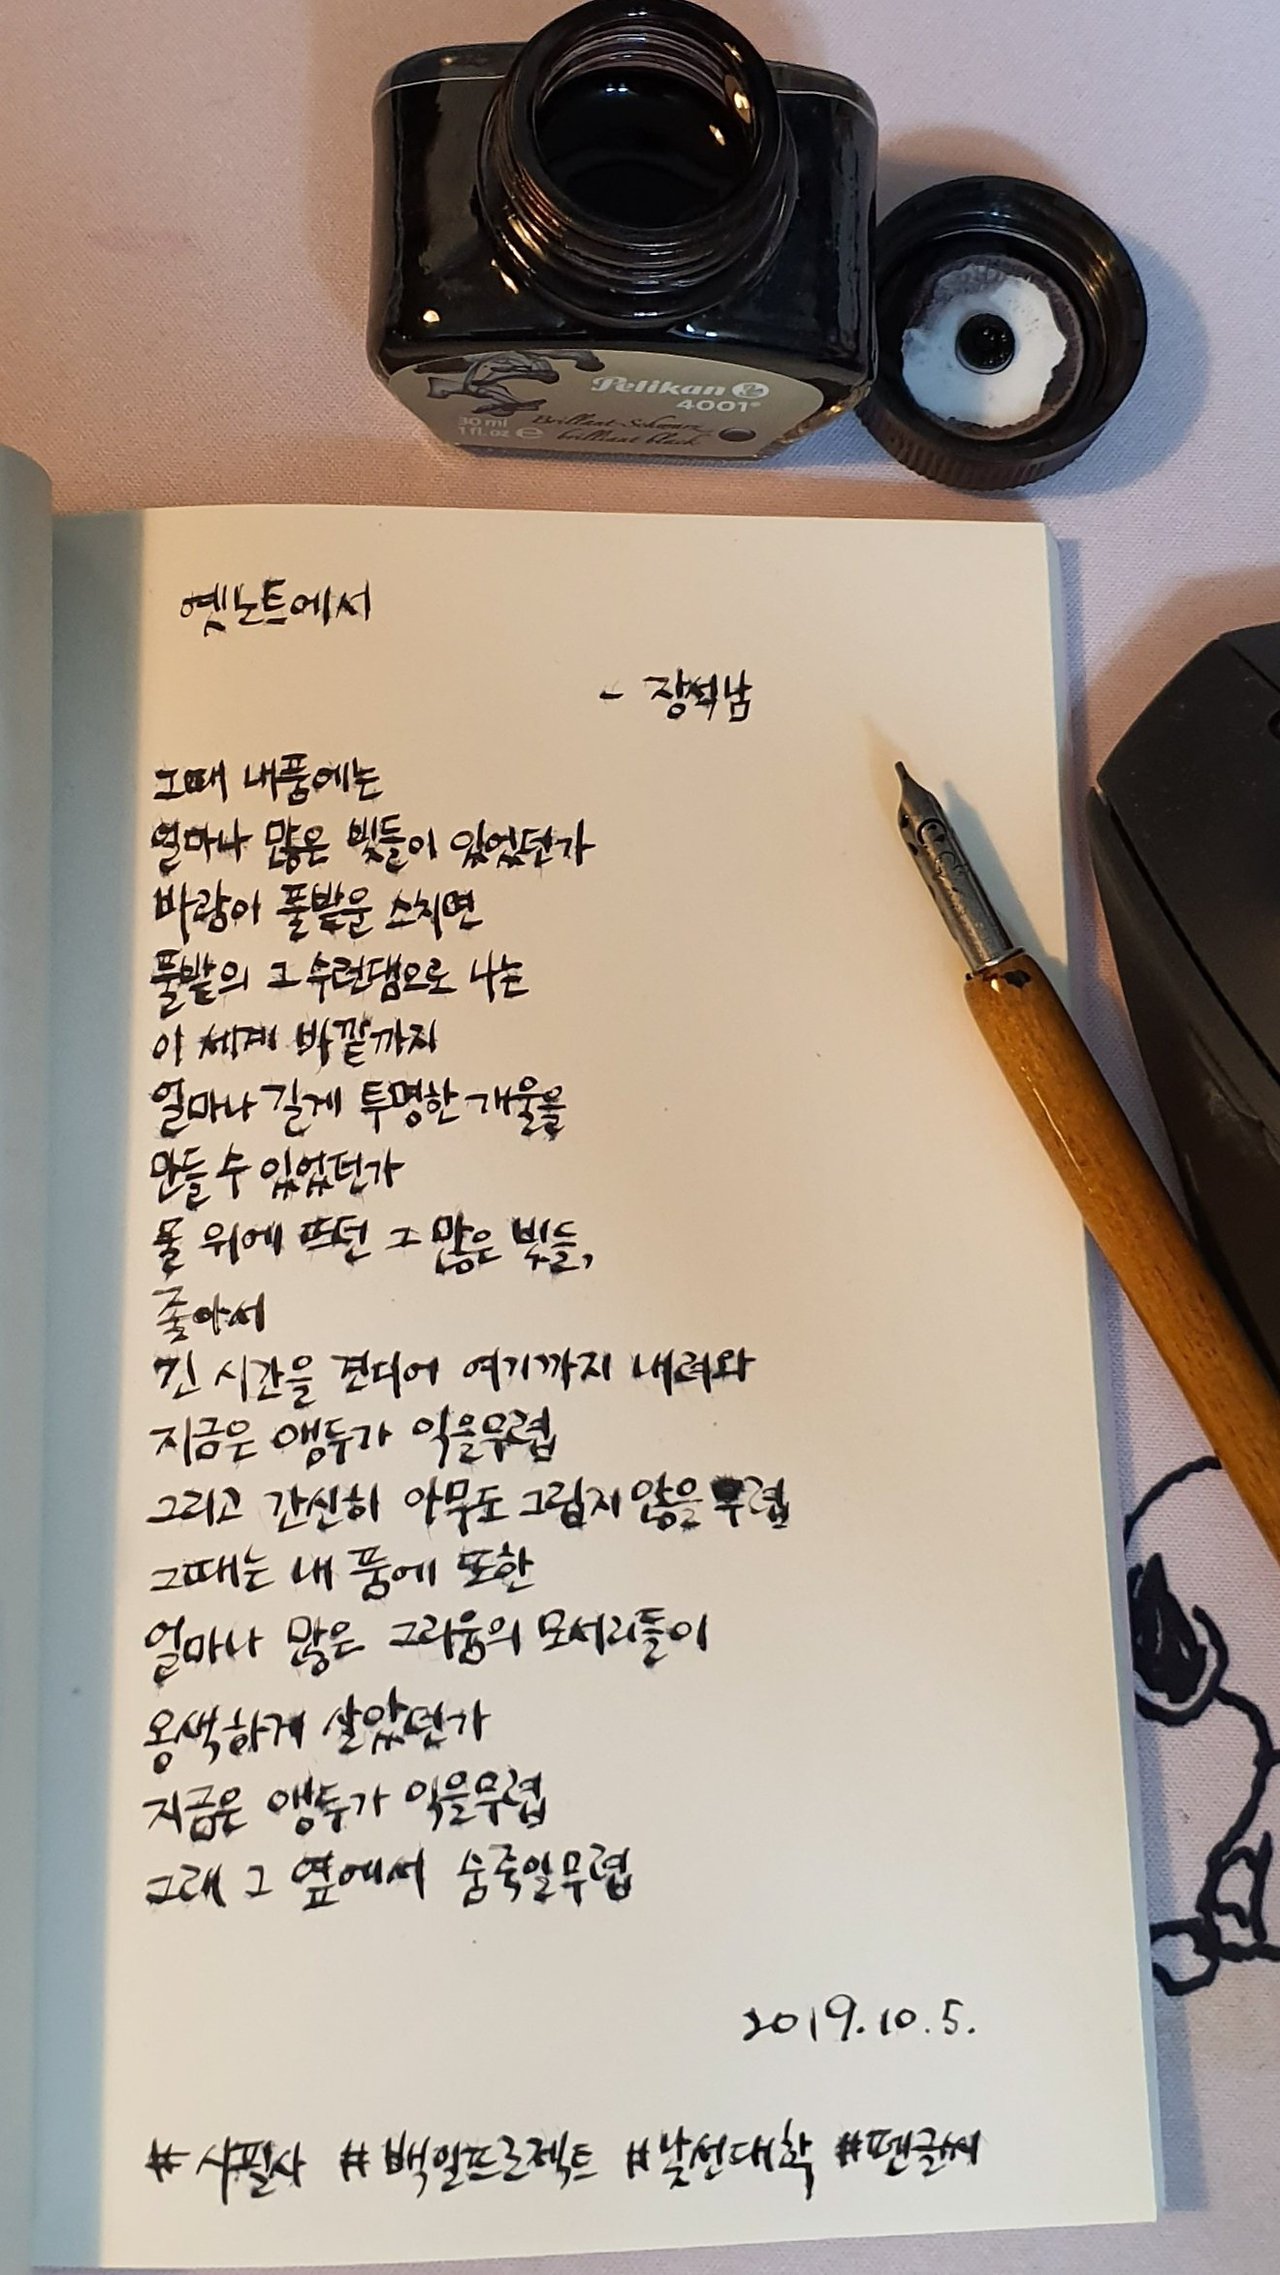 Pelikan
4001®
30 ml
1 fl. oz e
Brillant-Schwarz
brilliant black
옛노트에서
- 장석남
그때 내품에는
얼마나 많은 빛들이 있었던가
바람이 풀밭을 스치면
풀밭의 그 수런댐으로 나는
이 세계 바깥까지
얼마나 길게 투명한 개울을
만들 수 있었던가
물 위에 뜨던 그 많은 빛들,
좇아서
긴 시간을 견디어 여기까지 내려와
지금은 앵두가 익을무렵
그리고 간신히 아무도 그립지 않을 무렵
그때는 내 품에 또한
얼마나 많은 그리움의 모서리들이
옹색하게 살았던가
지금은 앵두가 익을무렵
그래 그 옆에서 숨죽일무렵
2019.10.5.
#시필사 #백일프로젝트 #낯선대학 #펜글씨